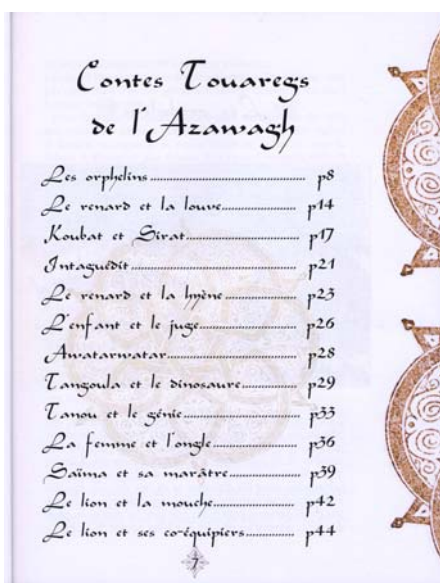 Contes Touaregs
de l'Azawagh
Les orphelins.................................... p8
Le renard et la louve.................. p14
Koubat et Sirat........................... p17
Intaguédit..................................... p21
Le renard et la hyène................. p23
L'enfant et le juge....................... p26
Awatarwatar................................ p28
Tangoula et le dinosaure............. p29
Tanou et le génie......................... p33
La femme et l'ongle.................... p36
Saïma et sa marâtre.................... p39
Le lion et la mouche................... p42
Le lion et ses co-équipiers........... p44
7